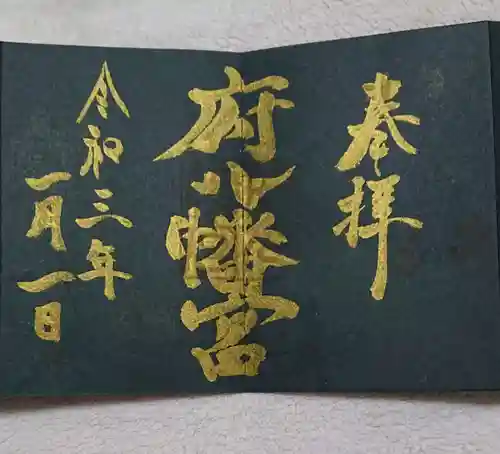 奉拝
府八幡宮
令和三年
一月一日